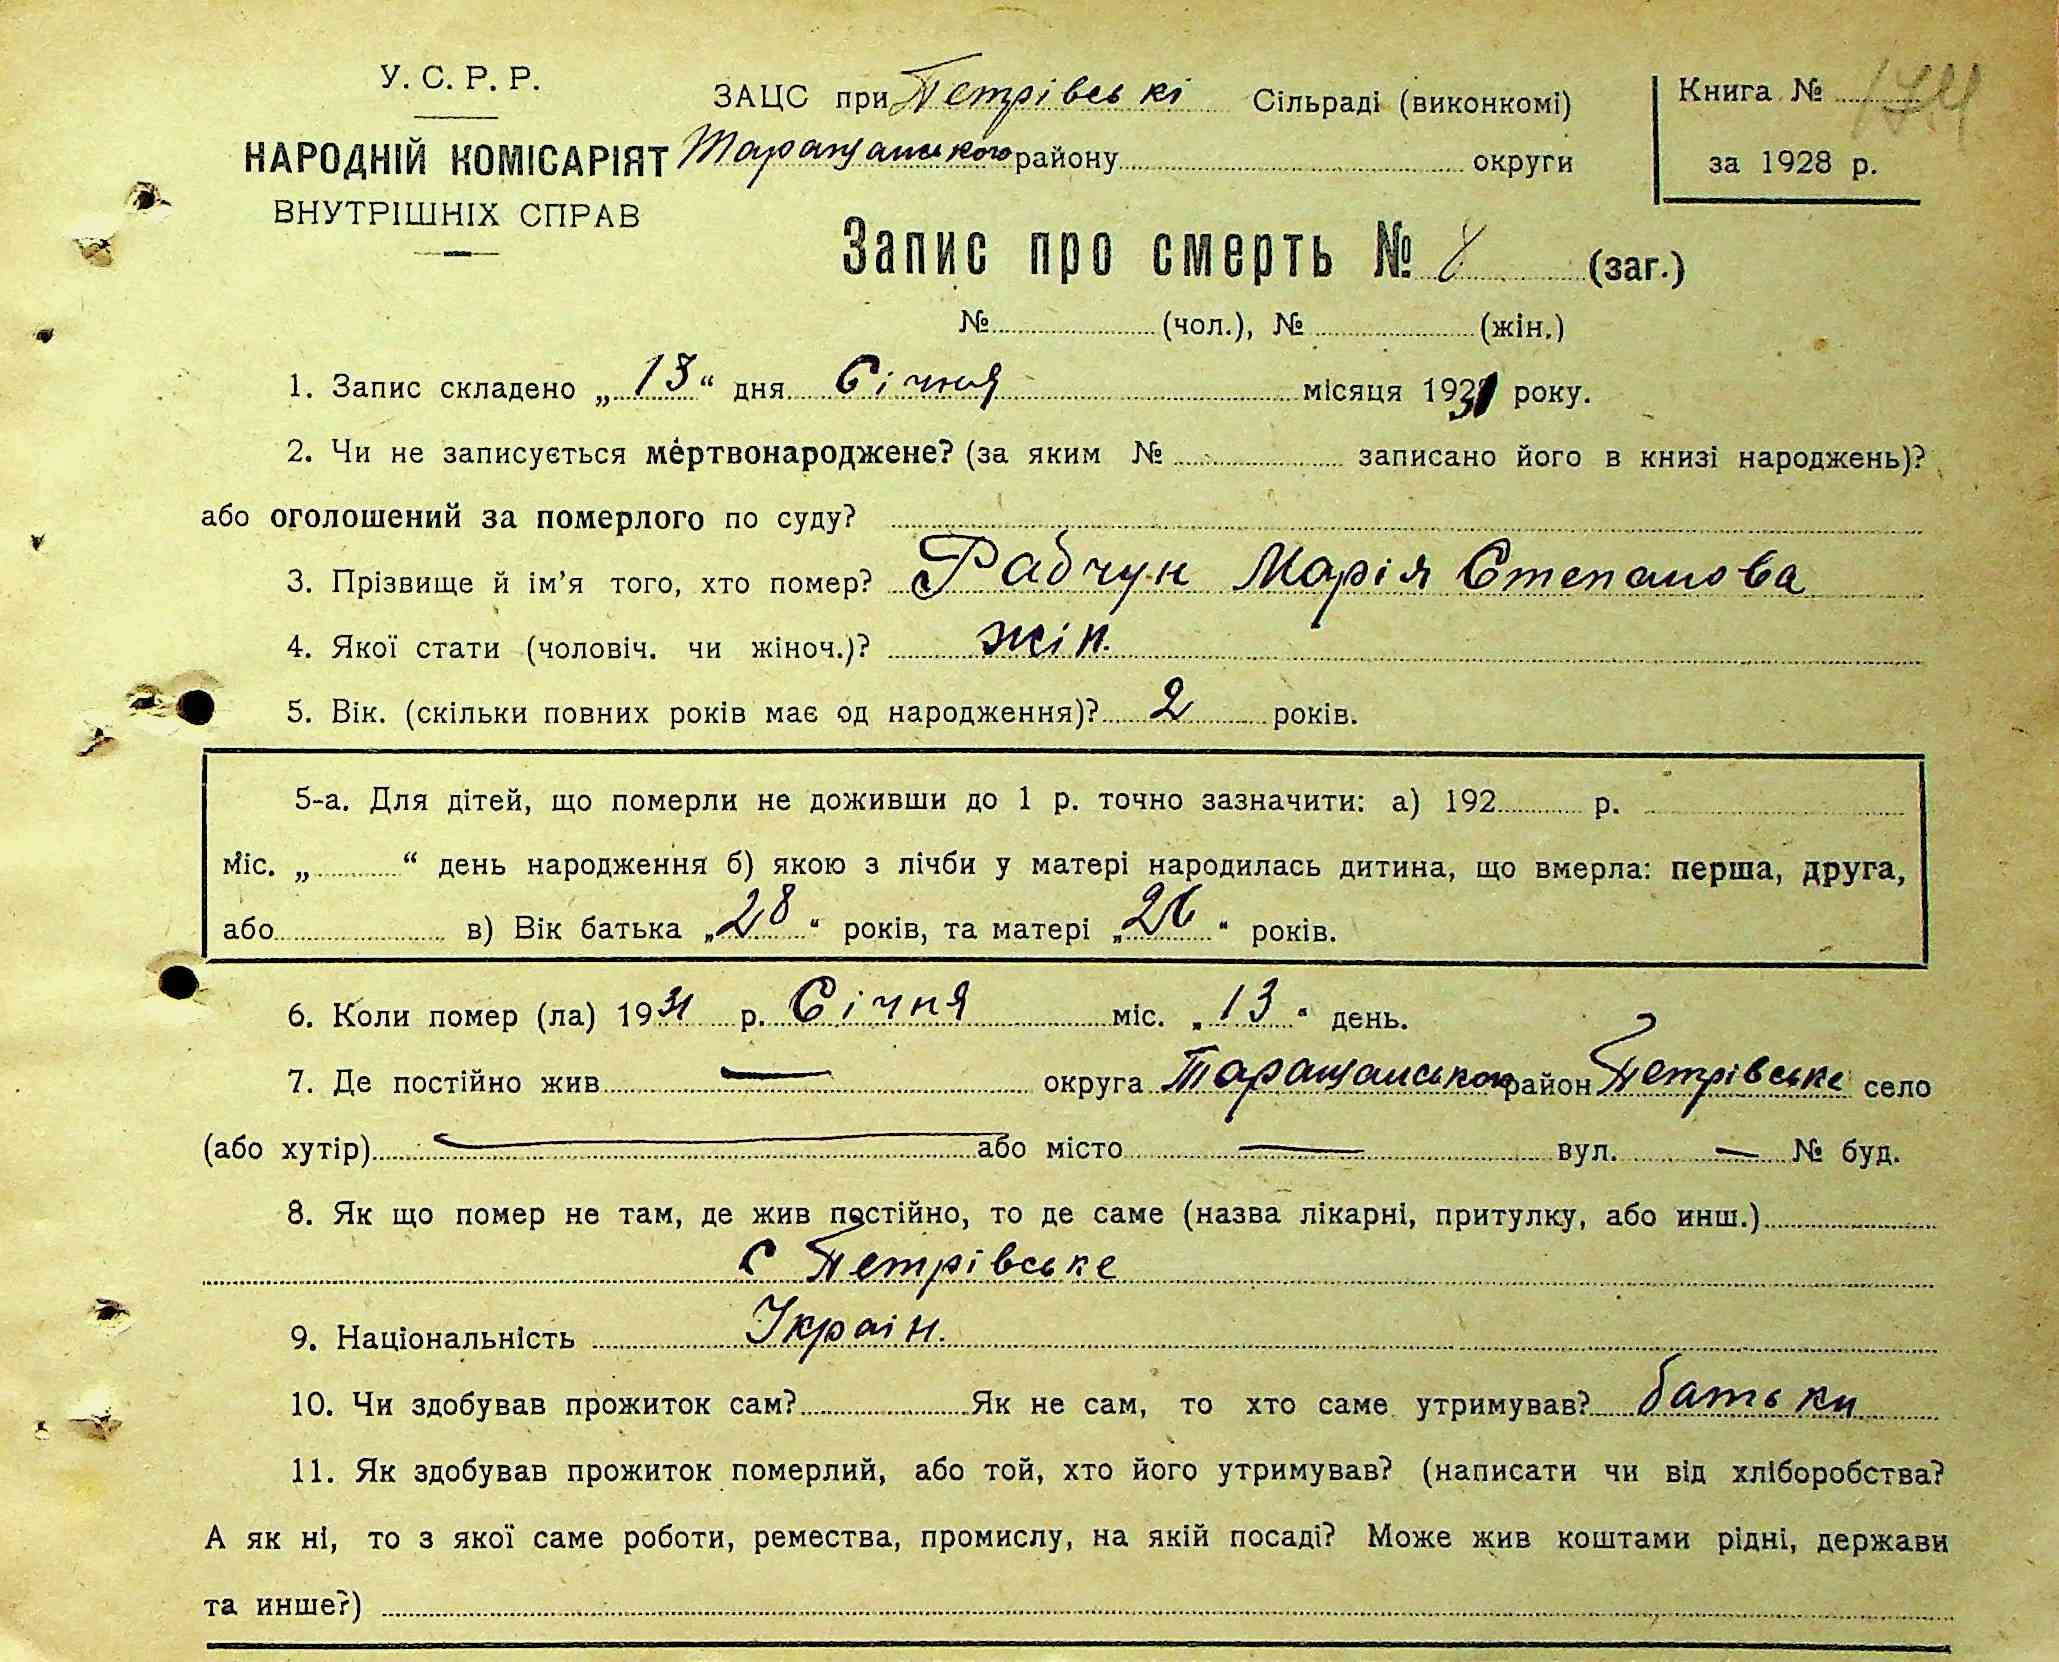 У. С. Р. Р.
НАРОДНІЙ КОМІСАРІЯТ
ВНУТРІШНІХ СПРАВ
ЗАЦС при Петрівські Сільраді (виконкомі)
Таращанського району округи
Книга №
за 1928 р.
Запис про смерть № 8 (заг.)
№ (чол.), № (жін.)
1. Запис складено „ 13 “ дня Січня місяця 1931 року.
2. Чи не записується мертвонароджене? (за яким № записано його в книзі народжень)?
або оголошений за померлого по суду?
3. Прізвище й ім’я того, хто помер? Рабчун Марія Степанова
4. Якої стати (чоловіч. чи жіноч.)? жін.
5. Вік. (скільки повних років має од народження)? 2 років.
5-а. Для дітей, що померли не доживши до 1 р. точно зазначити: а) 192 р.
міс. „ “ день народження б) якою з лічби у матері народилась дитина, що вмерла: перша, друга,
або в) Вік батька „ 28 “ років, та матері „ 26 “ років.
6. Коли помер (ла) 1931 р. Січня міс. „ 13 “ день.
7. Де постійно жив — округа Таращанського район Петрівське село
(або хутір) — або місто — вул. — № буд.
8. Як що помер не там, де жив постійно, то де саме (назва лікарні, притулку, або инш.)
С Петрівське
9. Національність Украін.
10. Чи здобував прожиток сам? Як не сам, то хто саме утримував? батьки
11. Як здобував прожиток померлий, або той, хто його утримував? (написати чи від хліборобства?
А як ні, то з якої саме роботи, ремества, промислу, на якій посаді? Може жив коштами рідні, держави
та инше?)